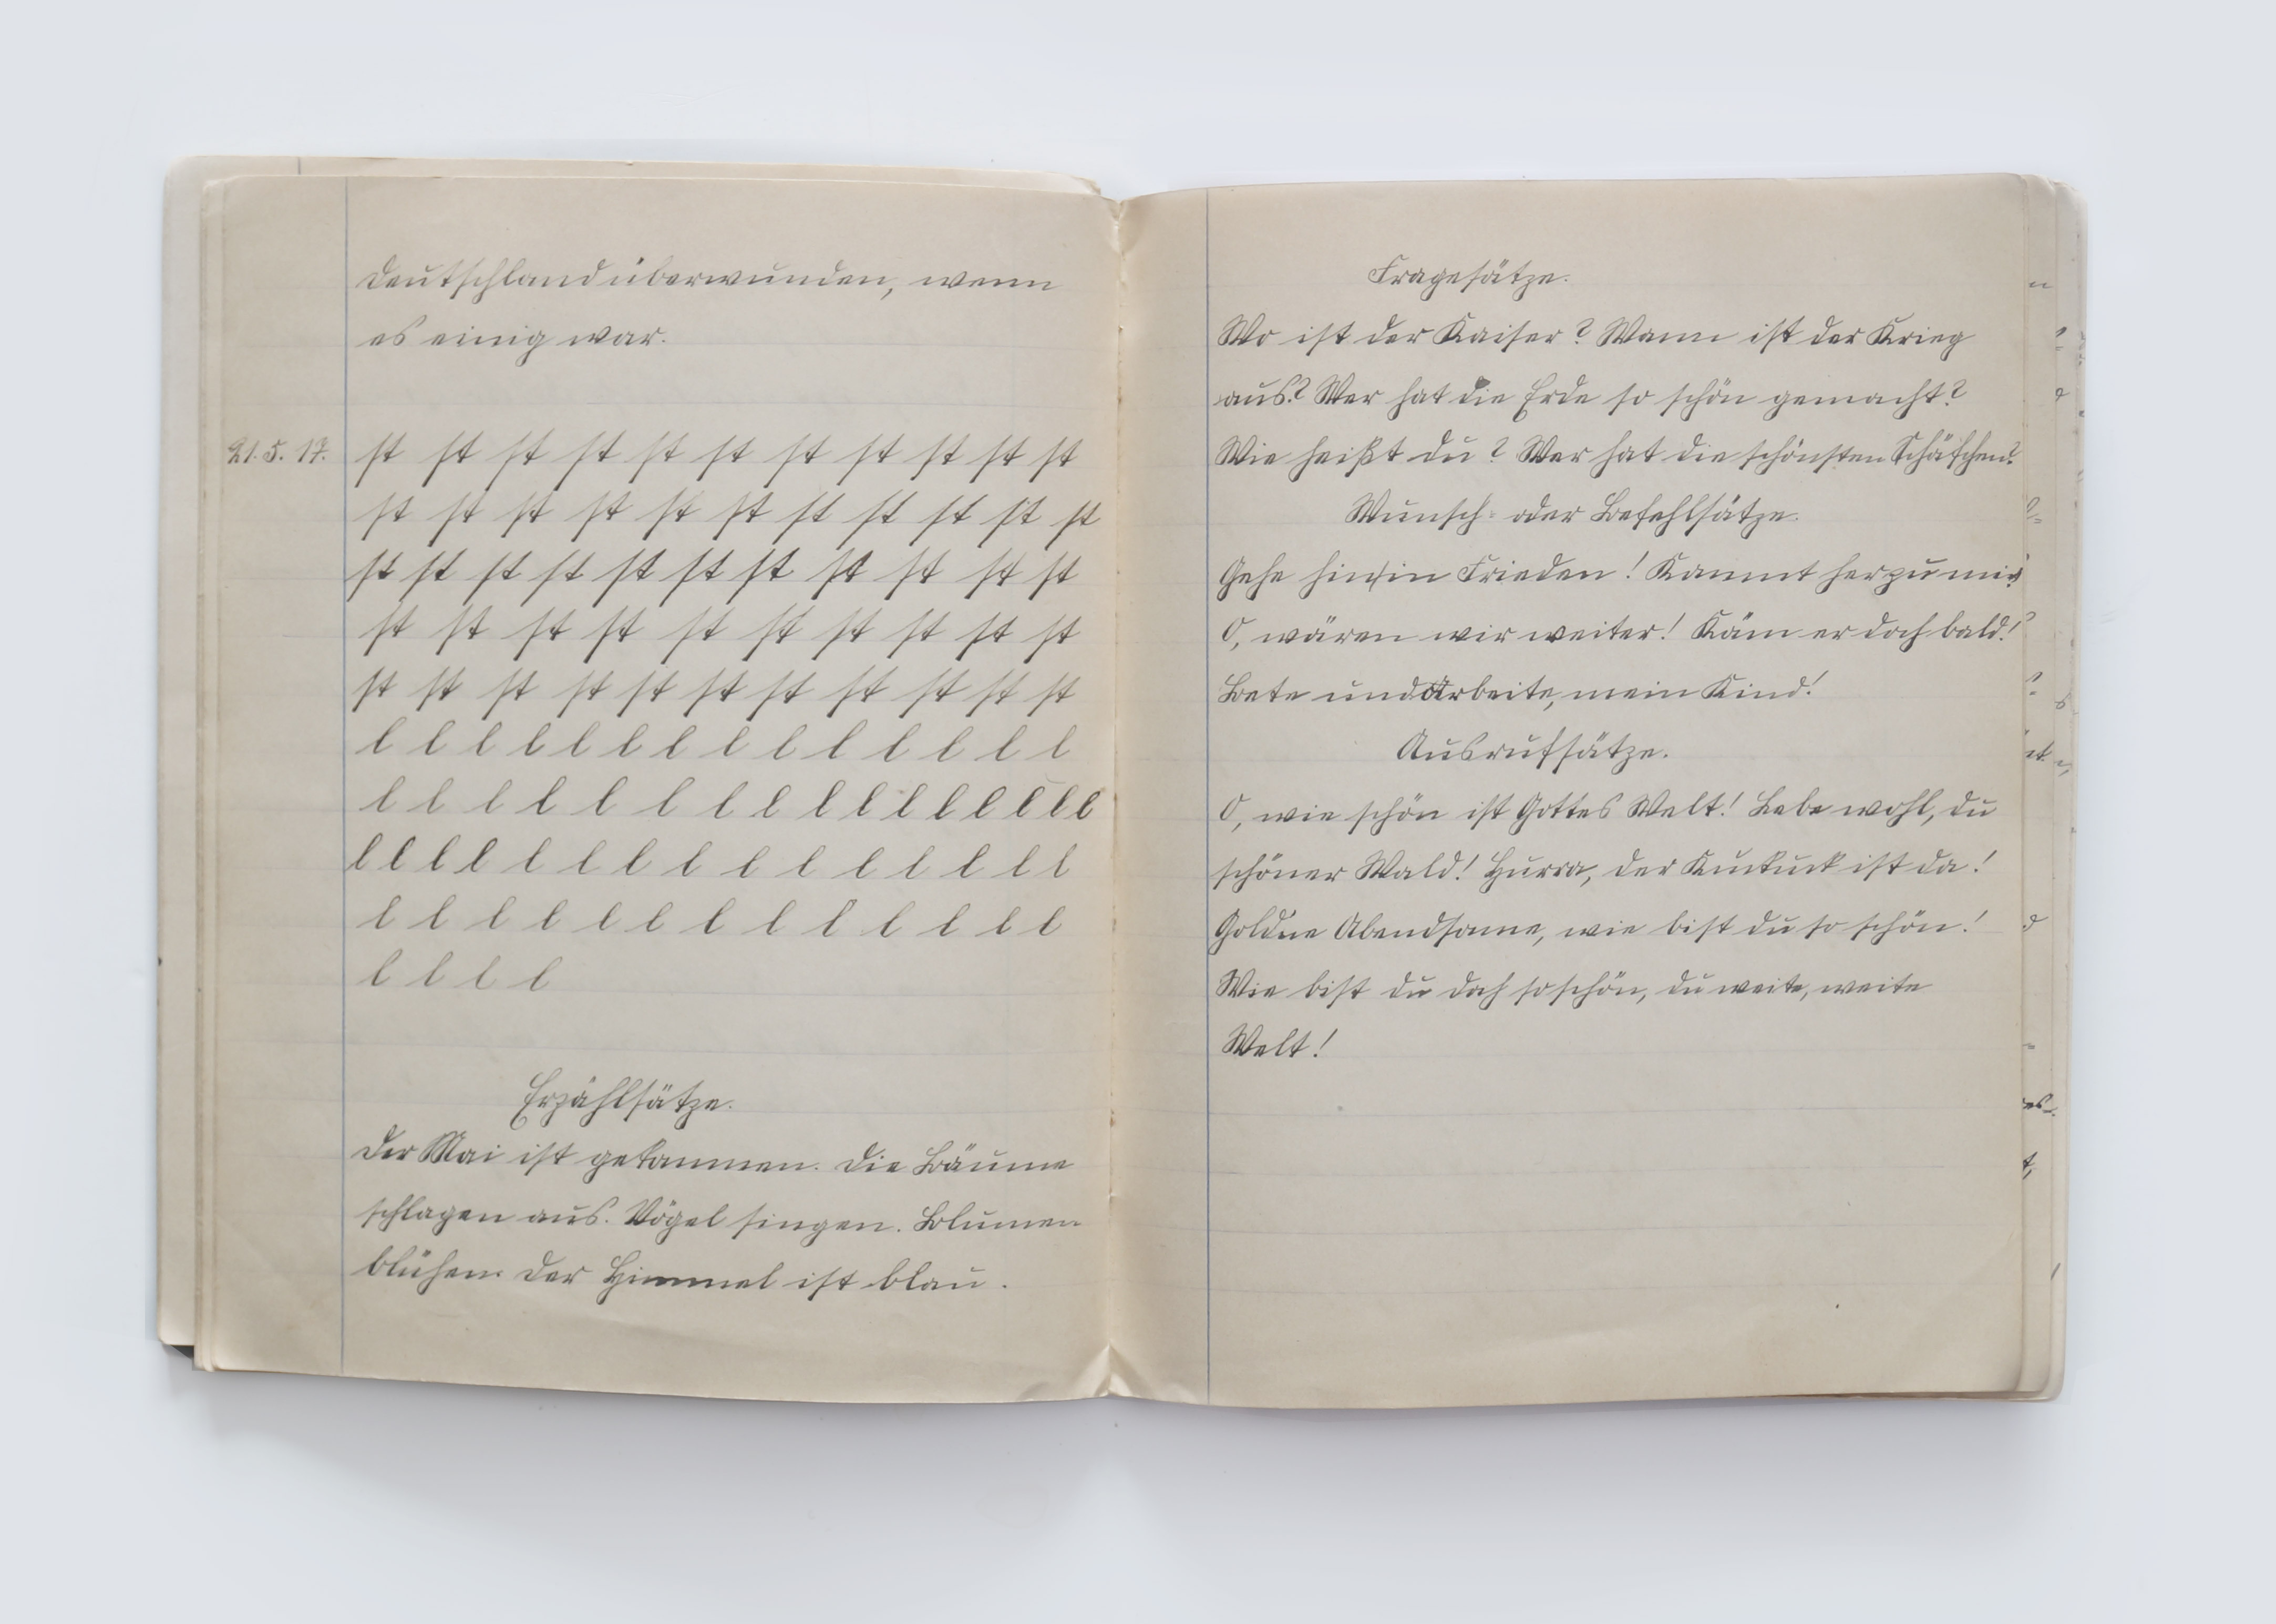 Deutschland überwunden, wenn
es einig war.
21. 5. 17. st st st st st st st st st st st
st st st st st st st st st st st
st st st st st st st st st st st
st st st st st st st st st st
st st st st st st st st st st st
l l l l l l l l l l l l l l
l l l l l l l l l l l l l l l l l
l l l l l l l l l l l l l l l l
l l l l l l l l l l l l l
l l l l
Erzählsätze.
Der Mai ist gekommen. Die Bäume
schlagen aus. Vögel singen. Blumen
blühen. Der Himmel ist blau.
Fragesätze.
Wo ist der Kaiser? Wann ist der Krieg
aus? Wer hat die Erde so schön gemacht?
Wie heißt du? Wer hat die schönsten Schäfchen?
Wunsch- oder Befehlsätze.
Gehe hin in Frieden! Kommt her zu mir!
O, wären wir weiter! Käm er doch bald!
Bete und arbeite, mein Kind!
Ausrufsätze.
O, wie schön ist Gottes Welt! Lebe wohl, du
schöner Wald! Hurra, der Kuckuck ist da!
Goldne Abendsonne, wie bist du so schön!
Wie bist du doch so schön, du weite, weite
Welt!